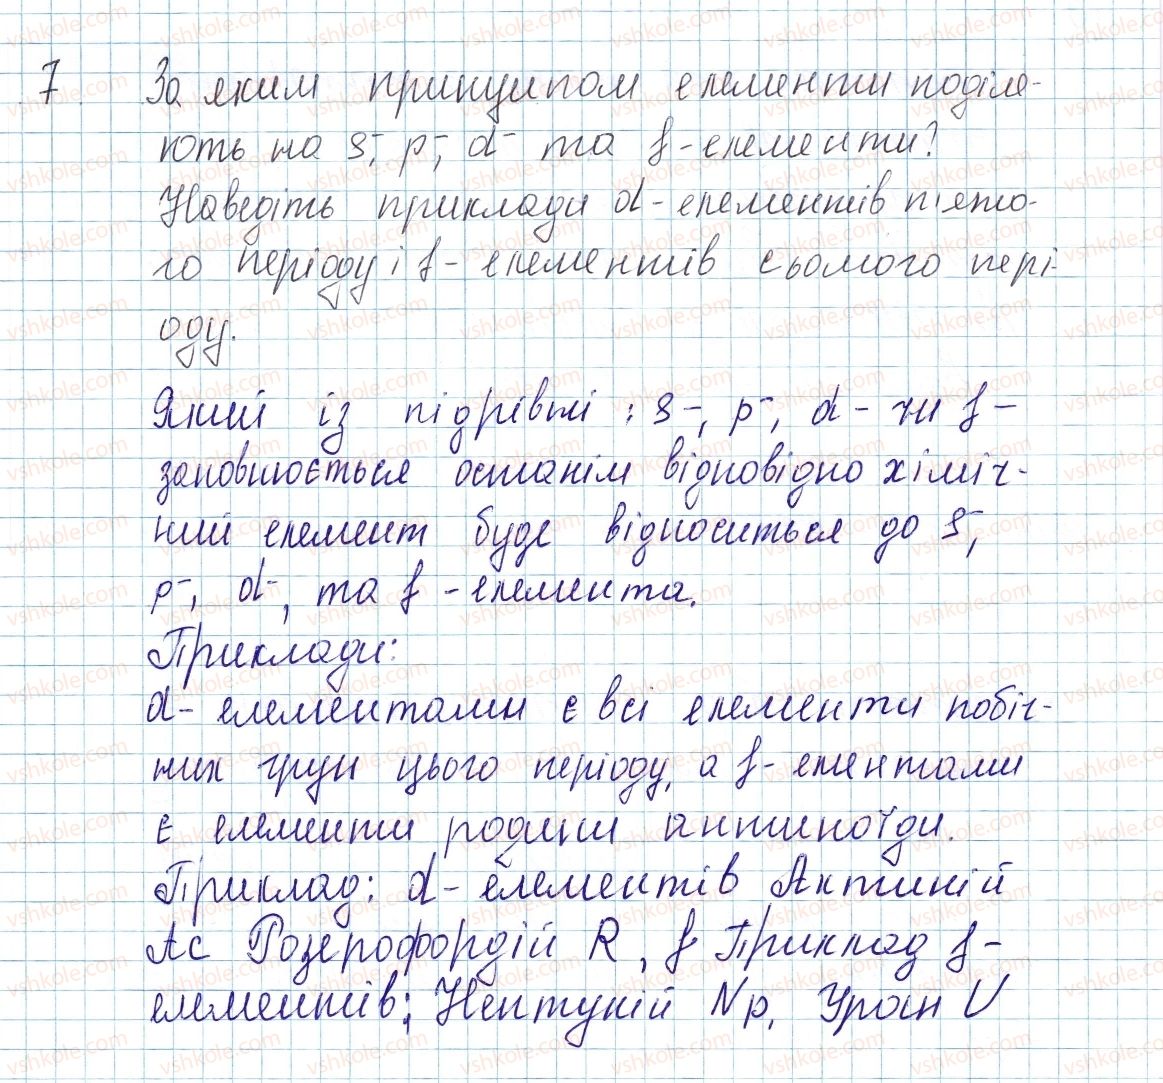 7 За яким принципом елементи поділя-
ють на s-, p-, d- та f-елементи?
Наведіть приклади d-елементів п'ято-
го періоду і f-елементів сьомого пері-
оду.
Який із підрівні: s-, p-, d- чи f-
заповнюється останім відповідно хіміч-
ний елемент буде відноситься до s-,
p-, d-, та f-елемента.
Приклади:
d-елементами є всі елементи побіч-
них груп цього періоду, а f-елентами
є елементи родини антиноїди.
Приклад: d-елементів Актиній
Ac Розерофордій R, f Приклад f-
елементів: Нептуній Np, Уран U